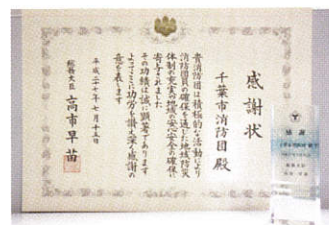 感謝状
千葉市消防団殿
貴消防団は積極的な活動により
消防団員の確保を通じた地域防災
体制の充実や地域の安心安全の確保に
寄与されました
その功績は誠に顕著であります
よってここに功労を讃え深く感謝の
意を表します
平成二十七年七月十五日
総務大臣 高市早苗
感謝